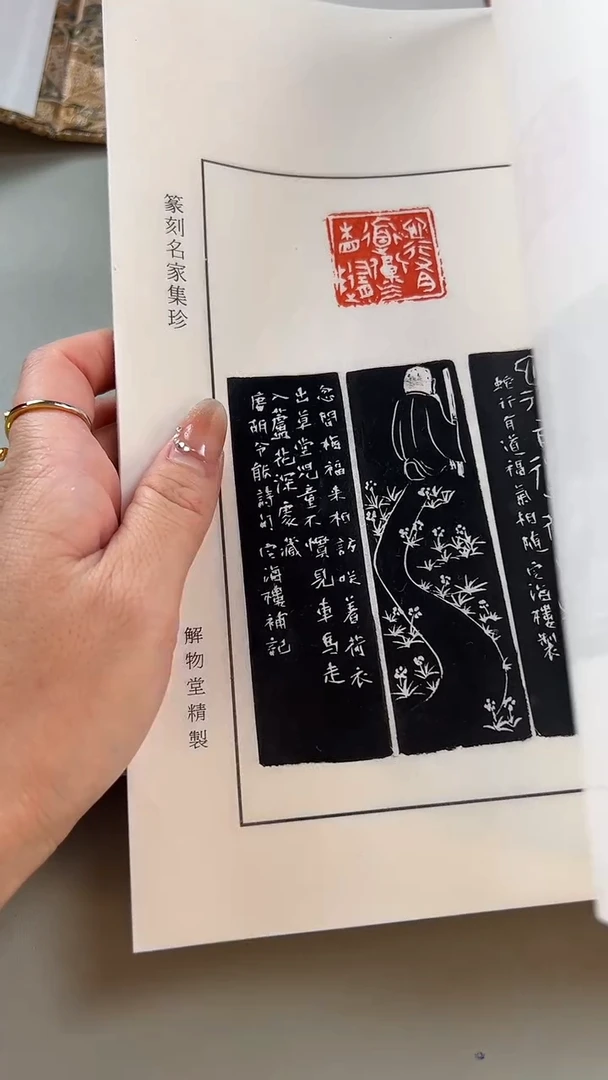 蛇行有道福氣相隨空海樓製
忽聞梅福来相訪咲着荷衣
出草堂児童不慣見車馬走
入蘆花深處藏
唐胡令能詩句空海樓補記
篆刻名家集珍
解物堂精製